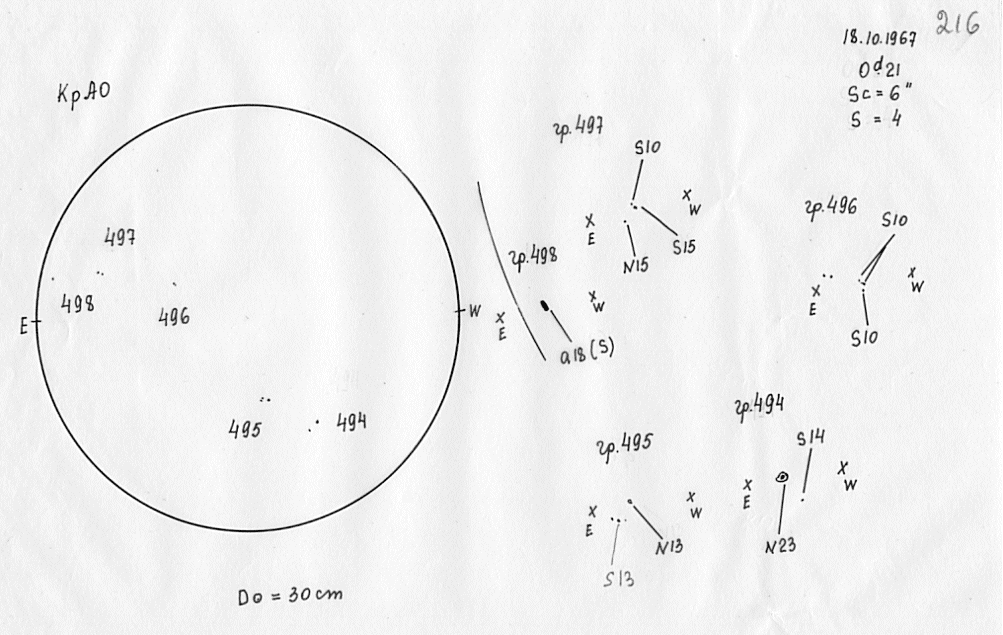 216
18.10.1967
0d21
Sc = 6"
S = 4
КрАО
497
498
496
E
W
495
494
D⊙ = 30 cm
гр.497
S10
X
E
X
W
N15
S15
гр.498
X
E
X
W
a18(S)
гр.496
S10
X
E
X
W
S10
гр.495
X
E
X
W
N13
S13
гр.494
S14
X
E
X
W
N23